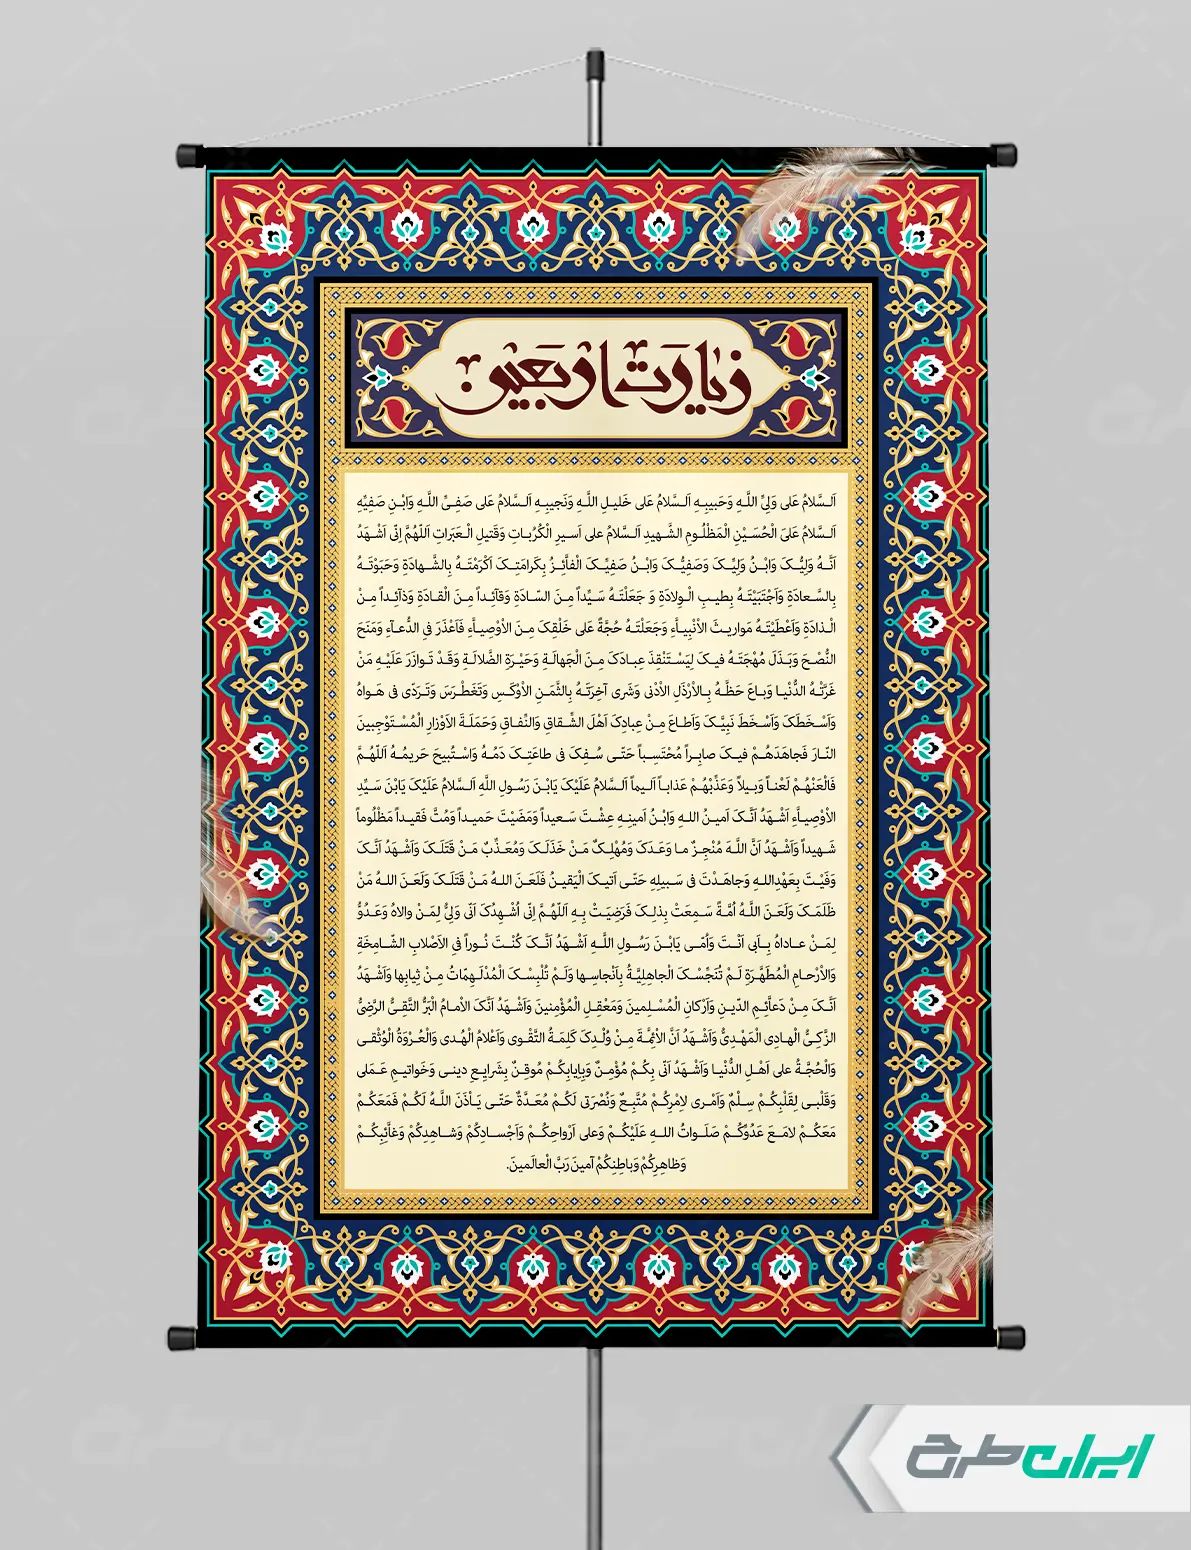 زیارت اربعین
اَلسَّلامُ عَلی وَلِیِّ اللَّهِ وَحَبیبِهِ اَلسَّلامُ عَلی خَلیلِ اللَّهِ وَنَجیبِهِ اَلسَّلامُ عَلی صَفِیِّ اللَّهِ وَابْنِ صَفِیِّهِ
اَلسَّلامُ عَلیَ الْحُسَیْنِ الْمَظْلُومِ الشَّهیدِ اَلسَّلامُ علی اَسیرِ الْکُرُباتِ وَقَتیلِ الْعَبَراتِ اَللّهُمَّ اِنّی اَشْهَدُ
اَنَّهُ وَلِیُّکَ وَابْنُ وَلِیِّکَ وَصَفِیُّکَ وَابْنُ صَفِیِّکَ الْفاَّئِزُ بِکَرامَتِکَ اَکْرَمْتَهُ بِالشَّهادَةِ وَحَبَوْتَهُ
بِالسَّعادَةِ وَاَجْتَبَیْتَهُ بِطیبِ الْوِلادَةِ وَ جَعَلْتَهُ سَیِّداً مِنَ السّادَةِ وَقآئِداً مِنَ الْقادَةِ وَذآئِداً مِنْ
الْذادَةِ وَاَعْطَیْتَهُ مَواریثَ الاْنْبِیاَّءِ وَجَعَلْتَهُ حُجَّةً عَلی خَلْقِکَ مِنَ الاْوْصِیاَّءِ فَاَعْذَرَ فیِ الدُّعآءِ وَمَنَحَ
النُّصْحَ وَبَذَلَ مُهْجَتَهُ فیکَ لِیَسْتَنْقِذَ عِبادَکَ مِنَ الْجَهالَةِ وَحَیْرَةِ الضَّلالَةِ وَقَدْ تَوازَرَ عَلَیْهِ مَنْ
غَرَّتْهُ الدُّنْیا وَباعَ حَظَّهُ بِالاْرْذَلِ الاْدْنی وَشَری آخِرَتَهُ بِالثَّمَنِ الاْوْکَسِ وَتَغَطْرَسَ وَتَرَدّی فی هَواهُ
وَاَسْخَطَکَ وَاَسْخَطَ نَبِیَّکَ وَاَطاعَ مِنْ عِبادِکَ اَهْلَ الشِّقاقِ وَالنِّفاقِ وَحَمَلَةَ الاْوْزارِ الْمُسْتَوْجِبینَ
النّارَ فَجاهَدَهُمْ فیکَ صابِراً مُحْتَسِباً حَتّی سُفِکَ فی طاعَتِکَ دَمُهُ وَاسْتُبیحَ حَریمُهُ اَللّهُمَّ
فَالْعَنْهُمْ لَعْناً وَبیلاً وَعَذِّبْهُمْ عَذاباً اَلیماً اَلسَّلامُ عَلَیْکَ یَابْنَ رَسُولِ اللَّهِ اَلسَّلامُ عَلَیْکَ یَابْنَ سَیِّدِ
الاْوْصِیاَّءِ اَشْهَدُ اَنَّکَ اَمینُ اللهِ وَابْنُ اَمینِهِ عِشْتَ سَعیداً وَمَضَیْتَ حَمیداً وَمُتَّ فَقیداً مَظْلُوماً
شَهیداً وَاَشْهَدُ اَنَّ اللَّهَ مُنْجِزٌ ما وَعَدَکَ وَمُهْلِکٌ مَنْ خَذَلَکَ وَمُعَذِّبٌ مَنْ قَتَلَکَ وَاَشْهَدُ اَنَّکَ
وَفَیْتَ بِعَهْدِاللهِ وَجاهَدْتَ فی سَبیلِهِ حَتّی اَتیکَ الْیَقینُ فَلَعَنَ اللهُ مَنْ قَتَلَکَ وَلَعَنَ اللهُ مَنْ
ظَلَمَکَ وَلَعَنَ اللَّهُ اُمَّةً سَمِعَتْ بِذلِکَ فَرَضِیَتْ بِهِ اَللّهُمَّ اِنّی اُشْهِدُکَ اَنّی وَلِیٌّ لِمَنْ والاهُ وَعَدُوٌّ
لِمَنْ عاداهُ بِاَبی اَنْتَ وَاُمّی یَابْنَ رَسُولِ اللَّهِ اَشْهَدُ اَنَّکَ کُنْتَ نُوراً فیِ الاْصْلابِ الشّامِخَةِ
وَالاْرْحامِ الْمُطَهَّرَةِ لَمْ تُنَجِّسْکَ الْجاهِلِیَّةُ بِاَنْجاسِها وَلَمْ تُلْبِسْکَ الْمُدْلَهِمّاتُ مِنْ ثِیابِها وَاَشْهَدُ
اَنَّکَ مِنْ دَعاَّئِمِ الدّینِ وَاَرْکانِ الْمُسْلِمینَ وَمَعْقِلِ الْمُؤْمِنینَ وَاَشْهَدُ اَنَّکَ الاْمامُ الْبَرُّ التَّقِیُّ الرَّضِیُّ
الزَّکِیُّ الْهادِی الْمَهْدِیُّ وَاَشْهَدُ اَنَّ الاْئِمَّةَ مِنْ وُلْدِکَ کَلِمَةُ التَّقْوی وَاَعْلامُ الْهُدی وَالْعُرْوَةُ الْوُثْقی
وَالْحُجَّةُ علی اَهْلِ الدُّنْیا وَاَشْهَدُ اَنّی بِکُمْ مُؤْمِنٌ وَبِاِیابِکُمْ مُوقِنٌ بِشَرایِعِ دینی وَخَواتیمِ عَمَلی
وَقَلْبی لِقَلْبِکُمْ سِلْمٌ وَاَمْری لاِمْرِکُمْ مُتَّبِعٌ وَنُصْرَتی لَکُمْ مُعَدَّةٌ حَتّی یَاْذَنَ اللَّهُ لَکُمْ فَمَعَکُمْ
مَعَکُمْ لامَعَ عَدُوِّکُمْ صَلَواتُ اللهِ عَلَیْکُمْ وَعلی اَرْواحِکُمْ وَاَجْسادِکُمْ وَشاهِدِکُمْ وَغاَّئِبِکُمْ
وَظاهِرِکُمْ وَباطِنِکُمْ آمینَ رَبَّ الْعالَمینَ.
ایران طرح